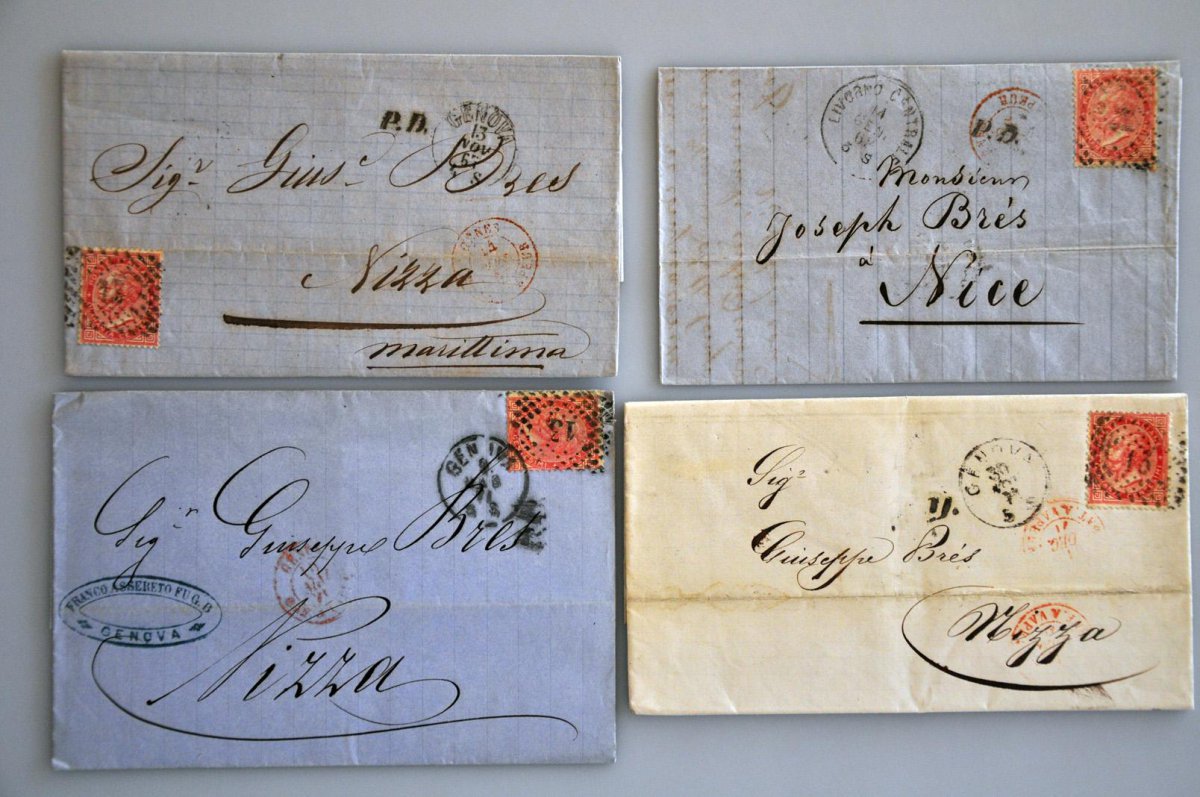 P.D.
GENOVA
13
NOV
Sigr Giusc Bres
Nizza
marittima
LIVORNO CENTRALE
14
P.D.
Monsieur
Joseph Brés
à
Nice
13
GENOVA
Sigr Giuseppe Bres
FRANCO ASSERETO FU G. B
GENOVA
Nizza
GENOVA
30
S
Sigr
Giuseppe Brés
DEC
71
Nizza